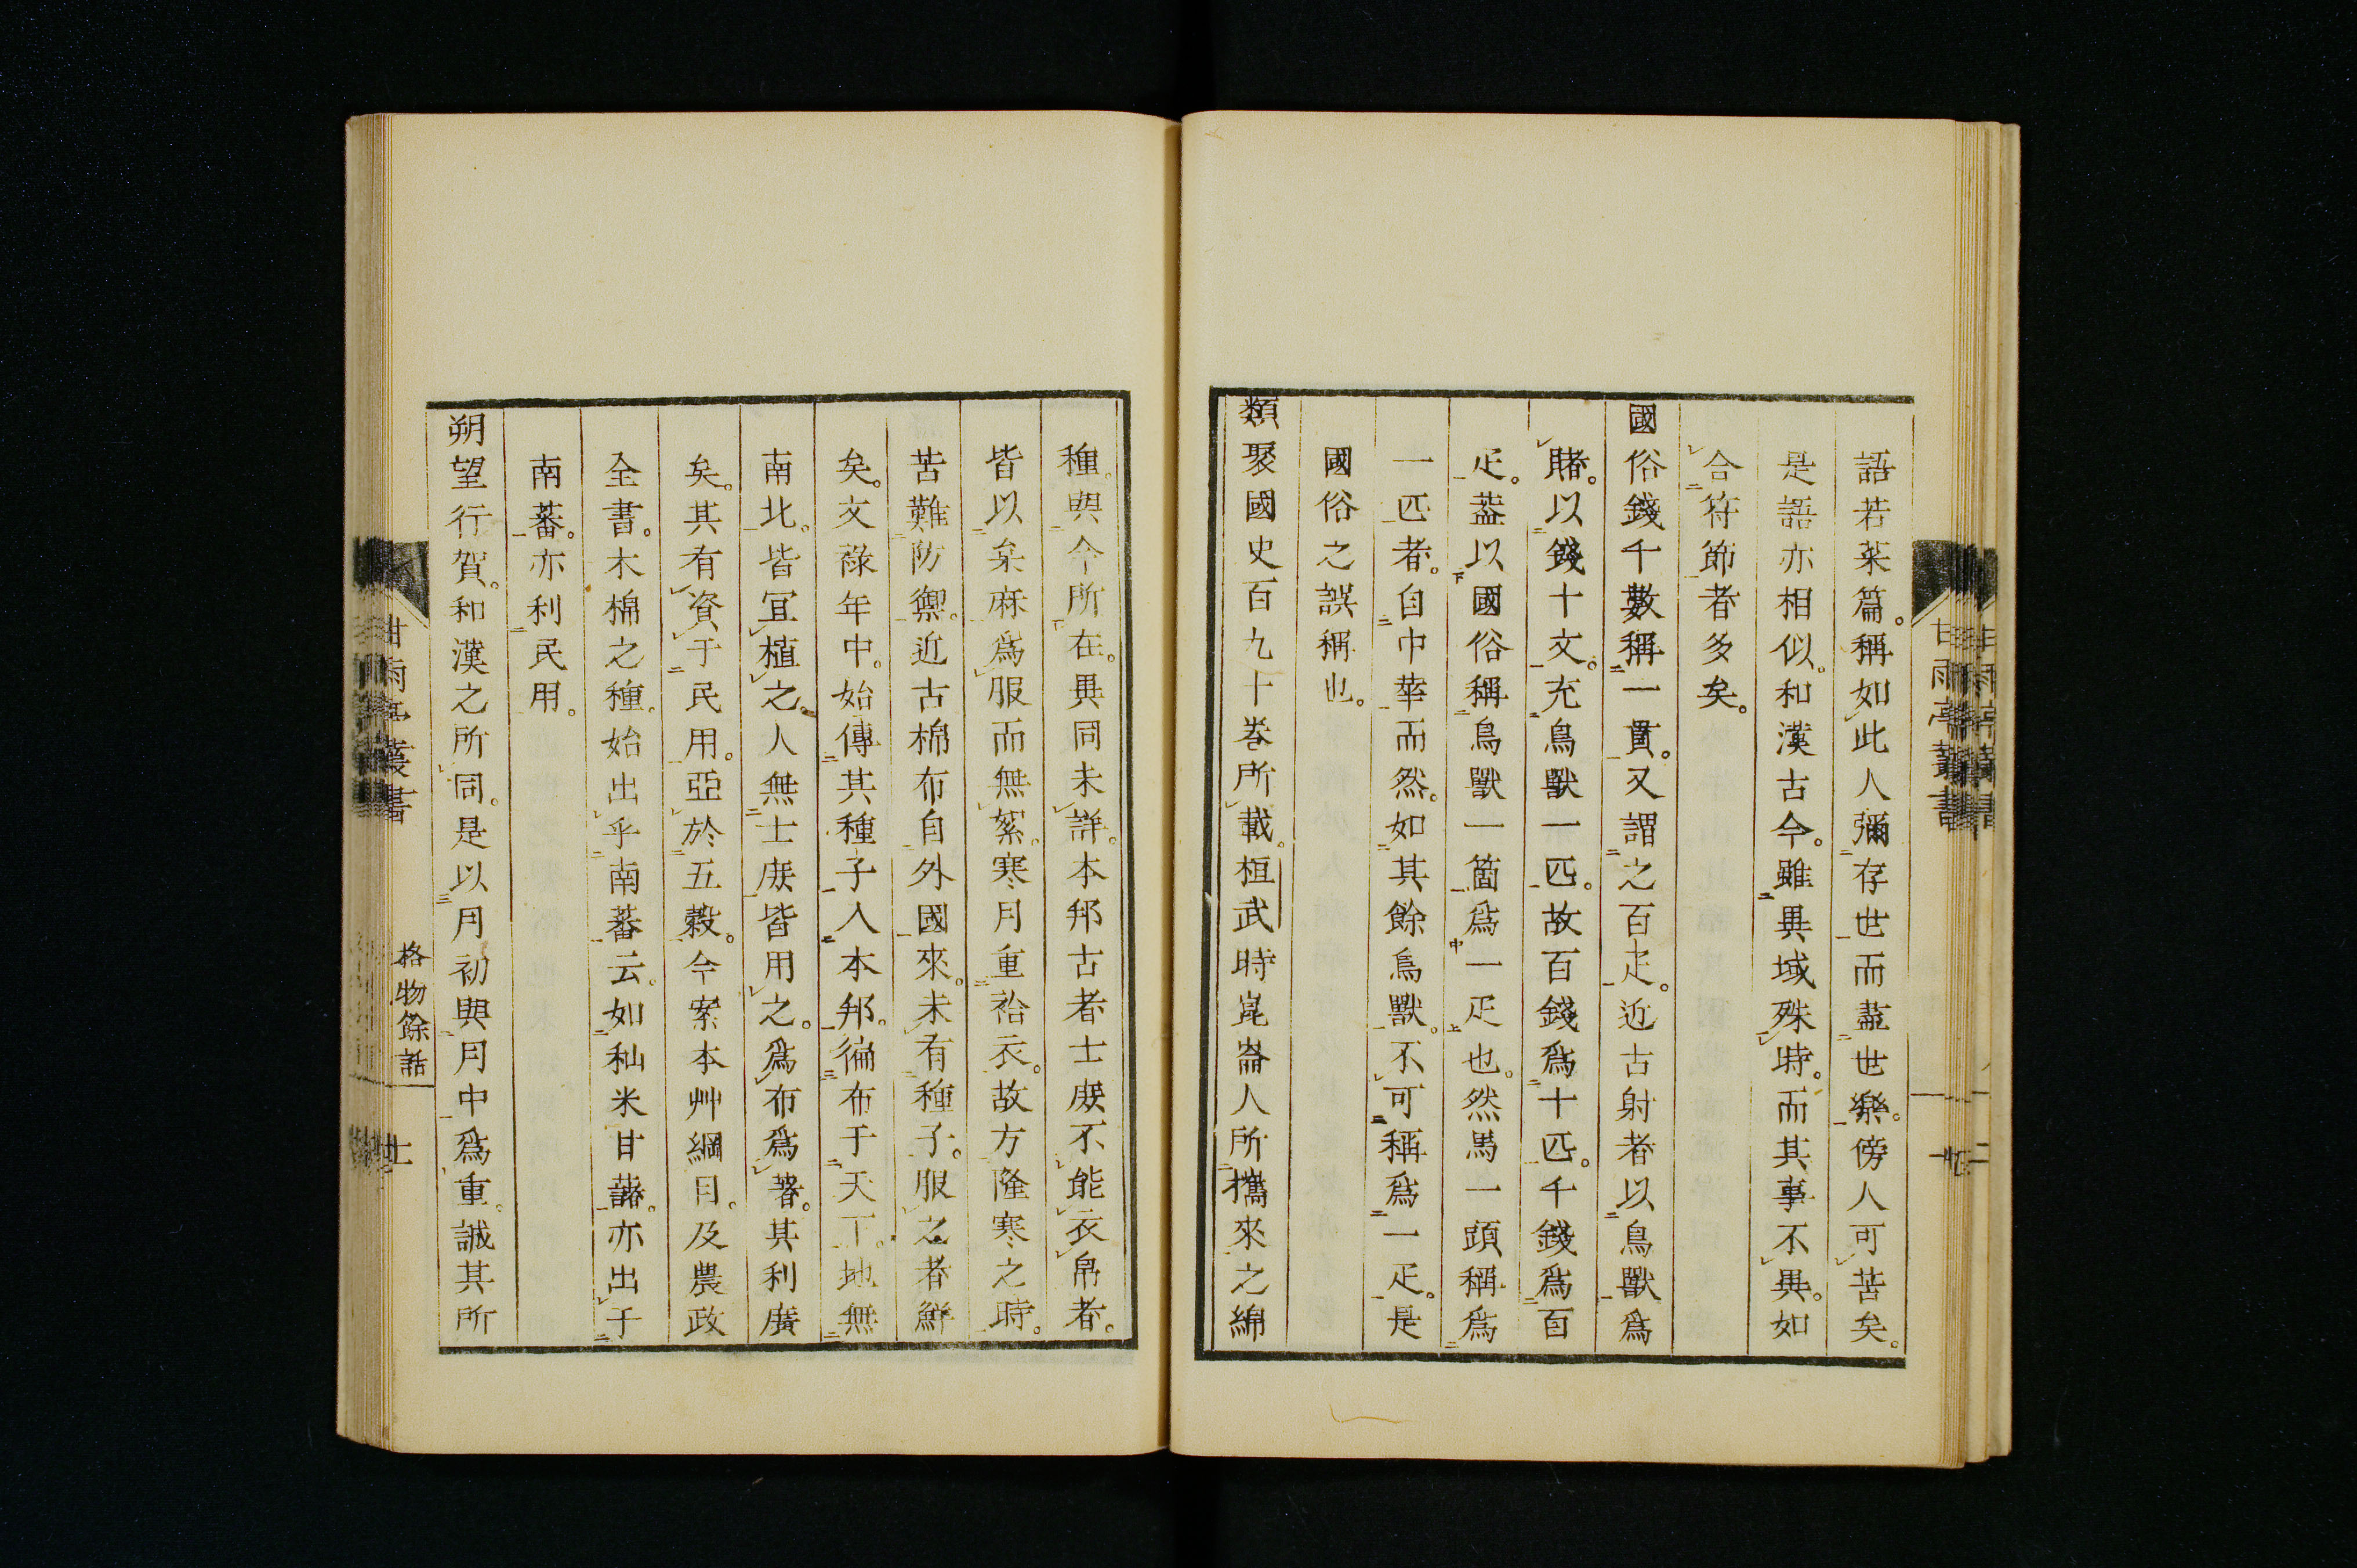 語若菜篇。稱如此人彌存世而盡世樂。傍人可苦矣。
是語亦相似。和漢古今。雖異域殊時。而其事不異。如
合符節者多矣。
國俗錢千數稱一貫。又謂之百疋。近古射者以鳥獸爲
賭。以錢十文。充鳥獸一匹。故百錢爲十匹。千錢爲百
疋。蓋以國俗稱鳥獸一箇爲一疋也。然馬一頭稱爲
一匹者。自中華而然。如其餘鳥獸。不可稱爲一疋。是
國俗之誤稱也。
類聚國史百九十卷所載。桓武時崑崙人所攜來之綿
種。與今所在。異同未詳。本邦古者士庶不能衣帛者。
皆以枲麻爲服而無絮。寒月重袷衣。故方隆寒之時。
苦難防禦。近古棉布自外國來。未有種子。服之者鮮
矣。文祿年中。始傳其種子入本邦。徧布于天下。地無
南北。皆宜植之。人無士庶皆用之。爲布爲著。其利廣
矣。其有資于民用。亞於五穀。今案本艸綱目。及農政
全書。木棉之種。始出乎南蕃云。如秈米甘藷。亦出于
南蕃。亦利民用。
朔望行賀。和漢之所同。是以月初與月中爲重。誠其所
甘雨亭叢書
甘雨亭叢書
格物餘話